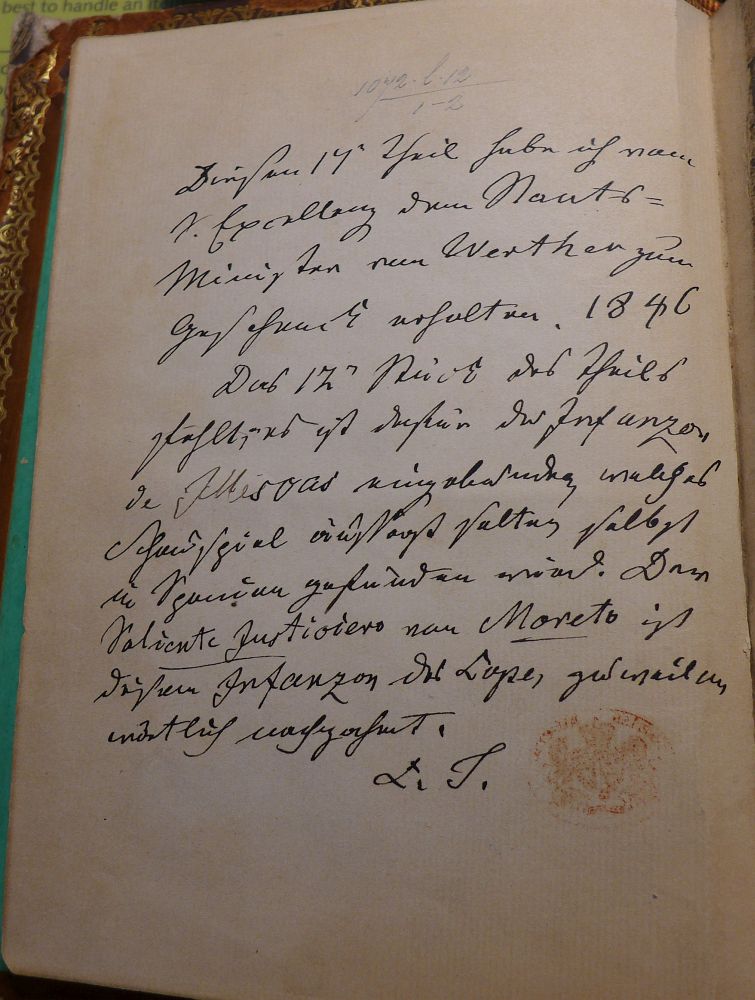 best to handle an
1072.l.12
1-2
Diesen 17r Theil habe ich vom
Excellenz dem Staats-
Minister von Werther zum
Geschenck erhalten. 1846
Das 12r Stück des Theils
fehlt; es ist dafür der Infanzon
de Illescas eingebunden, welches
Schauspiel äusserst selten selbst
in Spanien gefunden wird. Der
Valiente Justiciero von Moreto ist
diesem Infanzon des Lope, zuweilen
wörtlich nachgeahmt.
L. T.